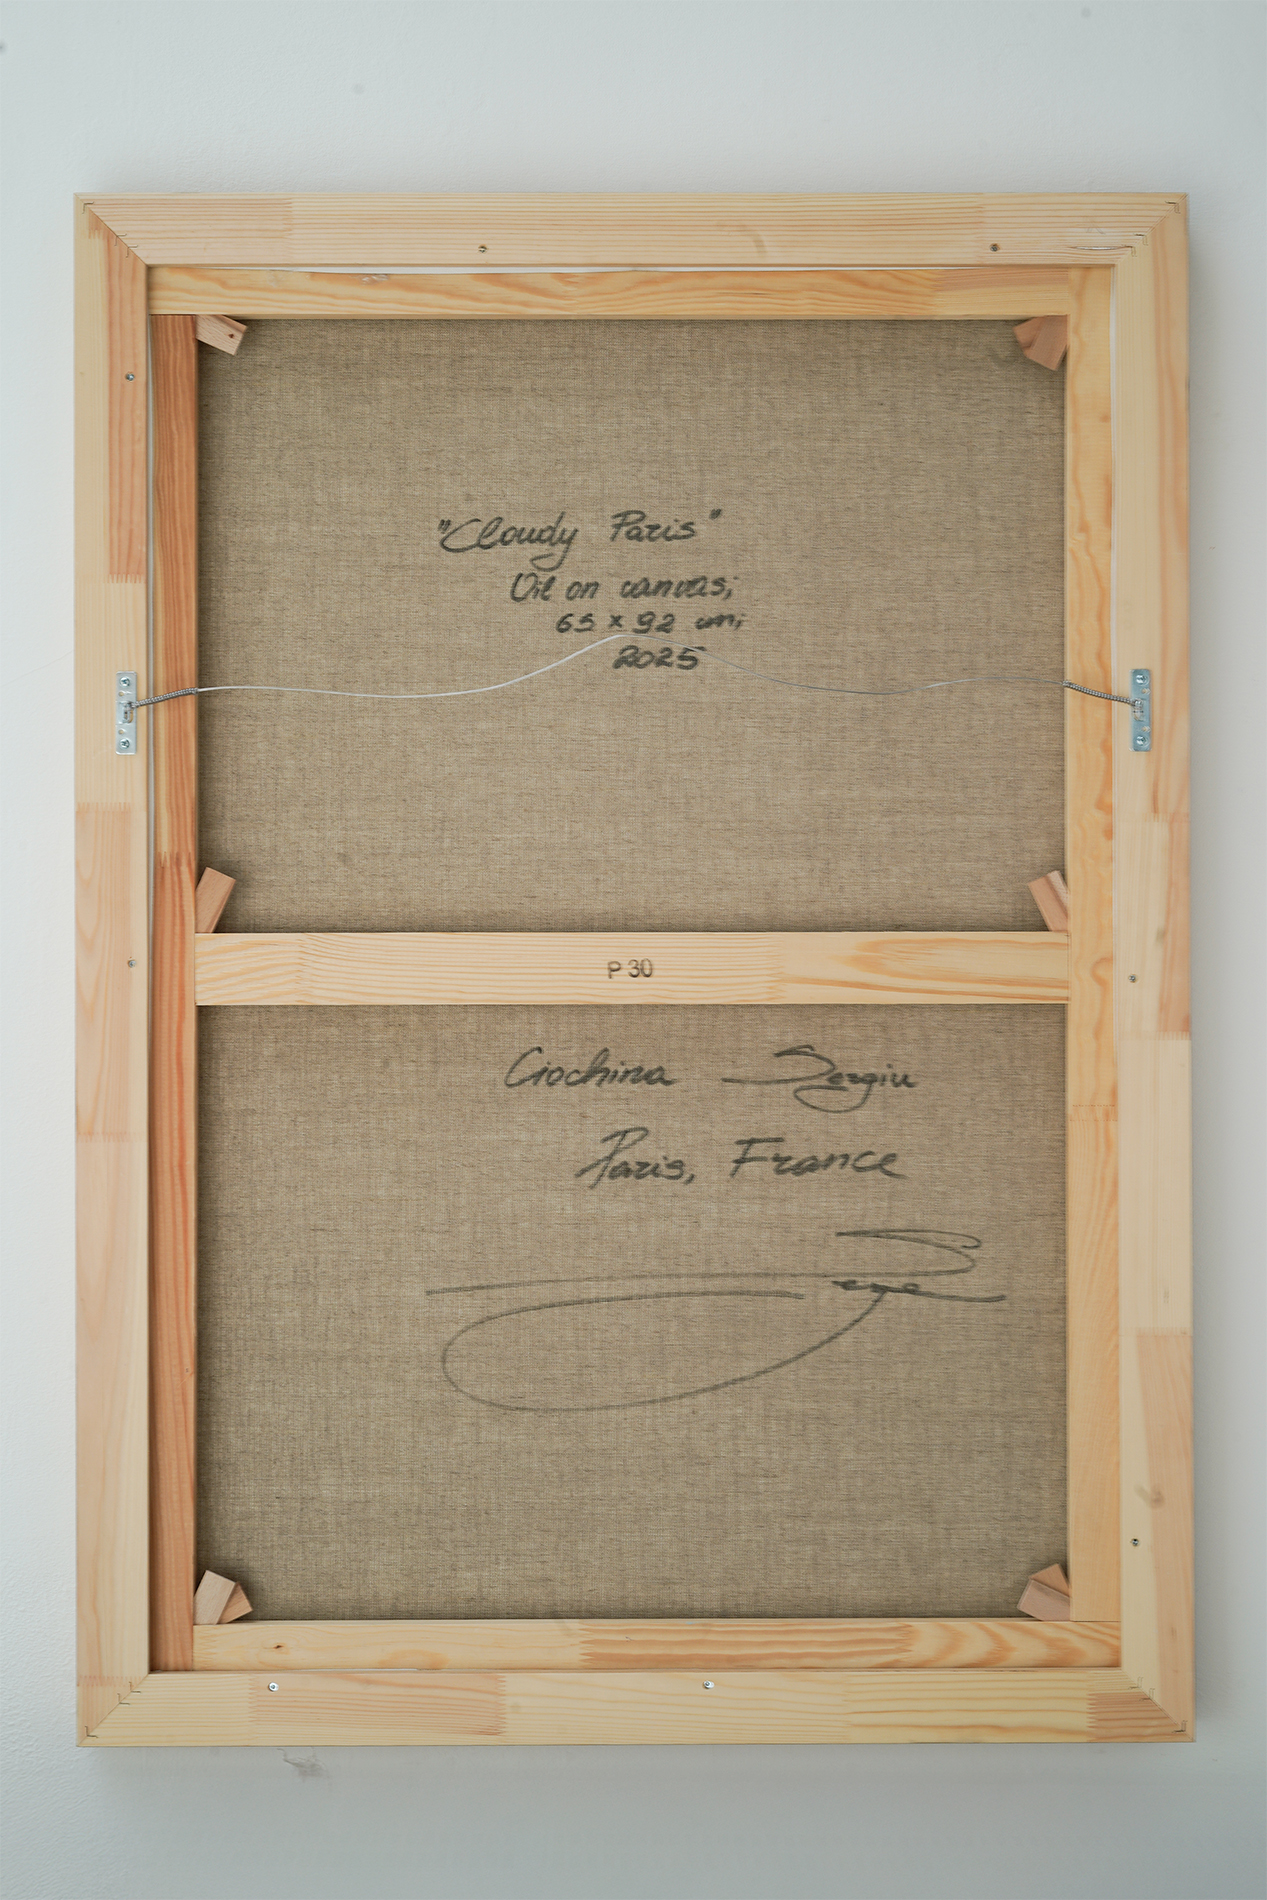 "Cloudy Paris"
Oil on canvas;
65 x 92 cm;
2025
P 30
Ciochina Sergiu
Paris, France